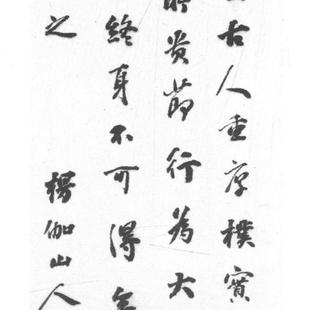 古人重厚樸實
所貴節行為大
終身不可得
之 楊伽山人